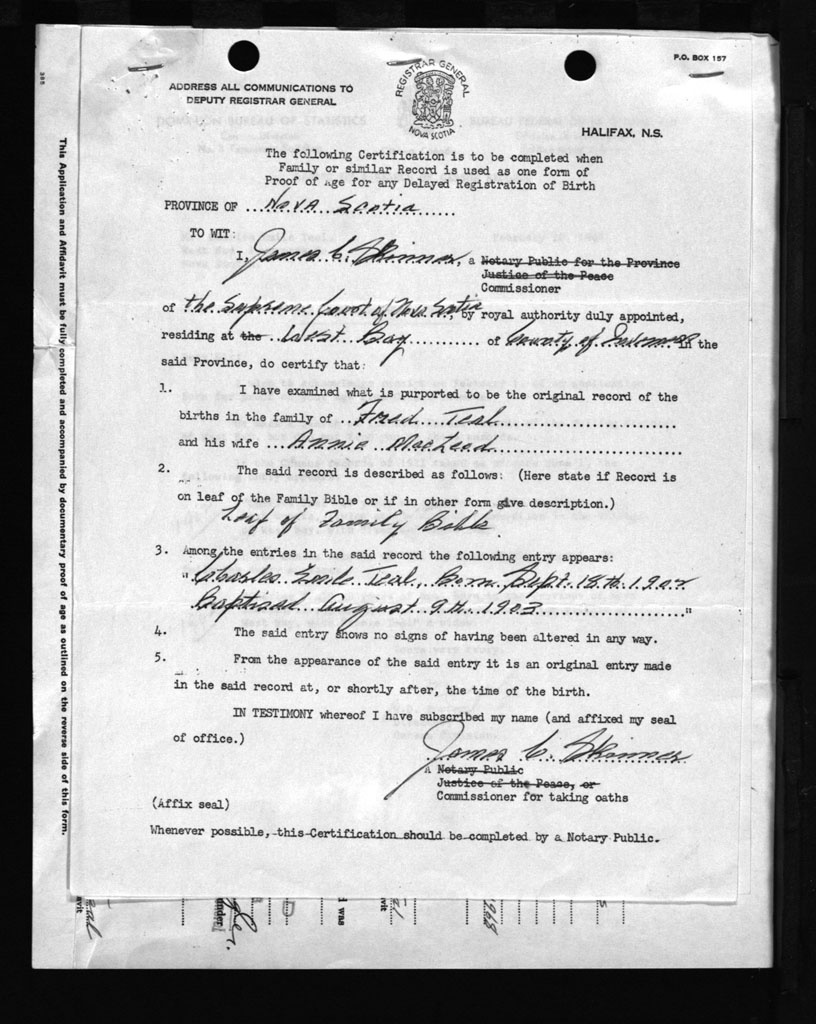 P.O. BOX 157
ADDRESS ALL COMMUNICATIONS TO
DEPUTY REGISTRAR GENERAL
REGISTRAR GENERAL
NOVA SCOTIA
HALIFAX, N.S.
The following Certification is to be completed when
Family or similar Record is used as one form of
Proof of Age for any Delayed Registration of Birth
PROVINCE OF ...Nova Scotia......
TO WIT:
I, James C. Skinner, a Notary Public for the Province
Justice of the Peace
Commissioner
of the Supreme Court of Nova Scotia, by royal authority duly appointed,
residing at the West Bay ............ of County of Inverness in the
said Province, do certify that:
1. I have examined what is purported to be the original record of the
births in the family of ..Fred Teal............................
and his wife ...Annie MacLeod............................
2. The said record is described as follows: (Here state if Record is
on leaf of the Family Bible or if in other form give description.)
Leaf of Family Bible
3. Among the entries in the said record the following entry appears:
"Charles Earle Teal, Born, Sept. 18th 1902
Baptised August 9th. 1903......................"
4. The said entry shows no signs of having been altered in any way.
5. From the appearance of the said entry it is an original entry made
in the said record at, or shortly after, the time of the birth.
IN TESTIMONY whereof I have subscribed my name (and affixed my seal
of office.)
James C. Skinner
A Notary Public
Justice of the Peace, or
Commissioner for taking oaths
(Affix seal)
Whenever possible, this Certification should be completed by a Notary Public.
This Application and Affidavit must be fully completed and accompanied by documentary proof of age as outlined on the reverse side of this form.
I was
1968